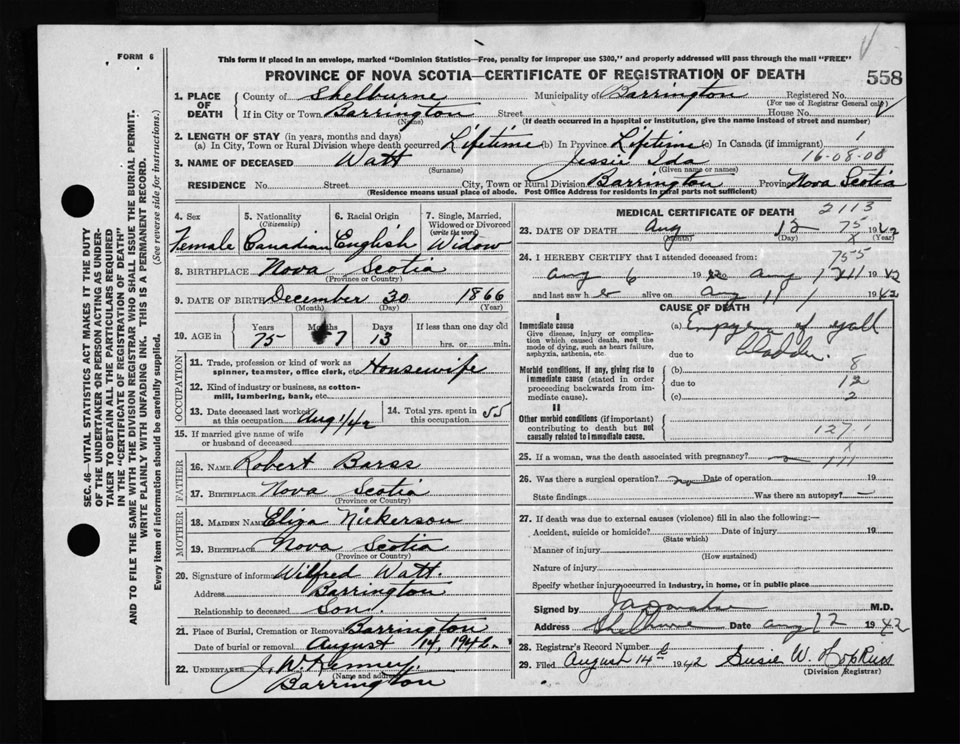 FORM 6
This form if placed in an envelope, marked "Dominion Statistics—Free, penalty for improper use $300," and properly addressed will pass through the mail "FREE"
PROVINCE OF NOVA SCOTIA—CERTIFICATE OF REGISTRATION OF DEATH
558
1. PLACE OF DEATH
County of Shelburne Municipality of Barrington Registered No.
(For use of Registrar General only)
If in City or Town Barrington Street House No.
(Name) (If death occurred in a hospital or institution, give the name instead of street and number)
2. LENGTH OF STAY (in years, months and days)
(a) In City, Town or Rural Division where death occurred Lifetime (b) In Province Lifetime (c) In Canada (if immigrant)
3. NAME OF DECEASED Watt Jessie Ida 16-08-08
(Surname) (Given name or names)
RESIDENCE No. Street City, Town or Rural Division Barrington Province Nova Scotia
(Residence means usual place of abode. Post Office Address for residents in rural parts not sufficient)
SEC. 46—VITAL STATISTICS ACT MAKES IT THE DUTY
OF THE UNDERTAKER OR PERSON ACTING AS UNDER-
TAKER TO OBTAIN ALL THE PARTICULARS REQUIRED
IN THE "CERTIFICATE OF REGISTRATION OF DEATH"
AND TO FILE THE SAME WITH THE DIVISION REGISTRAR WHO SHALL ISSUE THE BURIAL PERMIT.
WRITE PLAINLY WITH UNFADING INK. THIS IS A PERMANENT RECORD.
Every item of information should be carefully supplied. (See reverse side for instructions.)
4. Sex
Female
5. Nationality
(Citizenship)
Canadian
6. Racial Origin
English
7. Single, Married,
Widowed or Divorced
(write the word)
Widow
8. BIRTHPLACE Nova Scotia
(Province or Country)
9. DATE OF BIRTH December 30 1866
(Month) (Day) (Year)
10. AGE in
Years Months Days If less than one day old
75 7 13 hrs. or min.
OCCUPATION
11. Trade, profession or kind of work as
spinner, teamster, office clerk, etc. Housewife
12. Kind of industry or business, as cotton-
mill, lumbering, bank, etc.
13. Date deceased last worked
at this occupation Aug 1/42
14. Total yrs. spent in
this occupation 55
15. If married give name of wife
or husband of deceased
FATHER
16. NAME Robert Barss
17. BIRTHPLACE Nova Scotia
(Province or Country)
MOTHER
18. MAIDEN NAME Eliza Nickerson
19. BIRTHPLACE Nova Scotia
(Province or Country)
20. Signature of informant Wilfred Watt.
Address Barrington
Relationship to deceased Son.
21. Place of Burial, Cremation or Removal Barrington
Date of burial or removal August 14, 1942.
22. UNDERTAKER J. W. Kenney,
(Name and address)
Barrington
MEDICAL CERTIFICATE OF DEATH 2113
23. DATE OF DEATH Aug 12 75 1942
(Month) (Day) (Year)
24. I HEREBY CERTIFY that I attended deceased from: 755
Aug 6 1942 to Aug 1942
and last saw h er alive on Aug 11 1942
CAUSE OF DEATH
I
Immediate cause
Give disease, injury or complica-
tion which caused death, not the
mode of dying, such as heart failure,
asphyxia, asthenia, etc.
(a) Empyema of gall
due to bladder.
Morbid conditions, if any, giving rise to
immediate cause (stated in order
proceeding backwards from im-
mediate cause).
(b) 8
due to 12
(c) 2
II
Other morbid conditions (if important)
contributing to death but not
causally related to immediate cause.
127.1
25. If a woman, was the death associated with pregnancy?
26. Was there a surgical operation? no Date of operation 19
State findings Was there an autopsy? —
27. If death was due to external causes (violence) fill in also the following:—
Accident, suicide or homicide? Date of injury 19
(State which)
Manner of injury
(How sustained)
Nature of injury
Specify whether injury occurred in industry, in home, or in public place
Signed by M.D.
Address Shelburne Date Aug 12 1942
28. Registrar's Record Number
29. Filed August 14th 1942 Susie W. Hopkins
(Division Registrar)